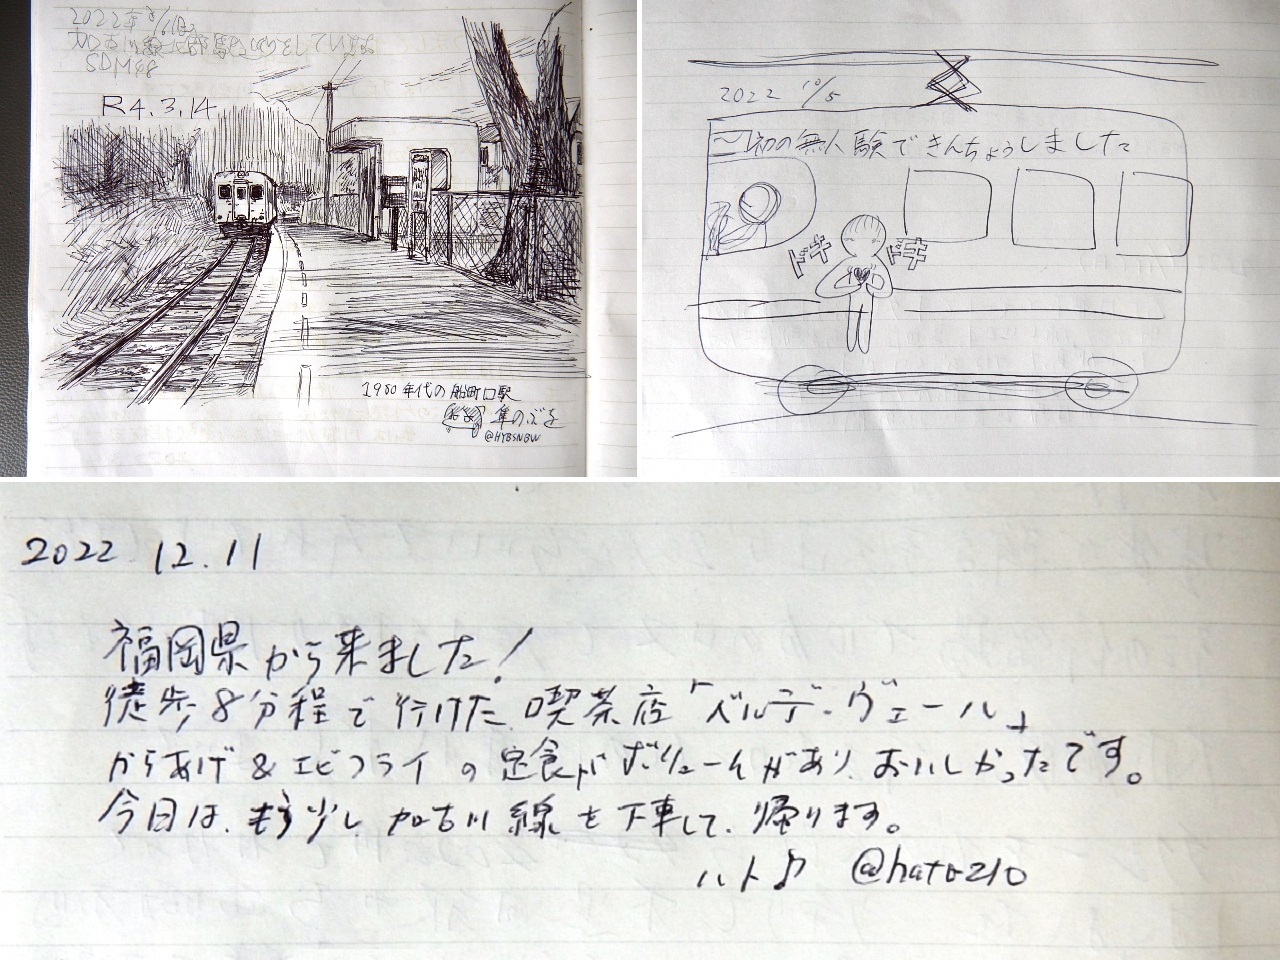 2022年
SDM48
R4.3.14
1980年代の船町口駅
隼のぶを
@HYBSNBW
2022 10/5
初の無人験できんちょうしました
ドキ
ドキ
2022 12.11
福岡県から来ました!
徒歩8分程で行けた喫茶店「ベルデ・ヴェール」
からあげ&エビフライの定食がボリュームがあり、おいしかったです。
今日は、もう少し加古川線を下車して、帰ります。
ハト♪ @hato210